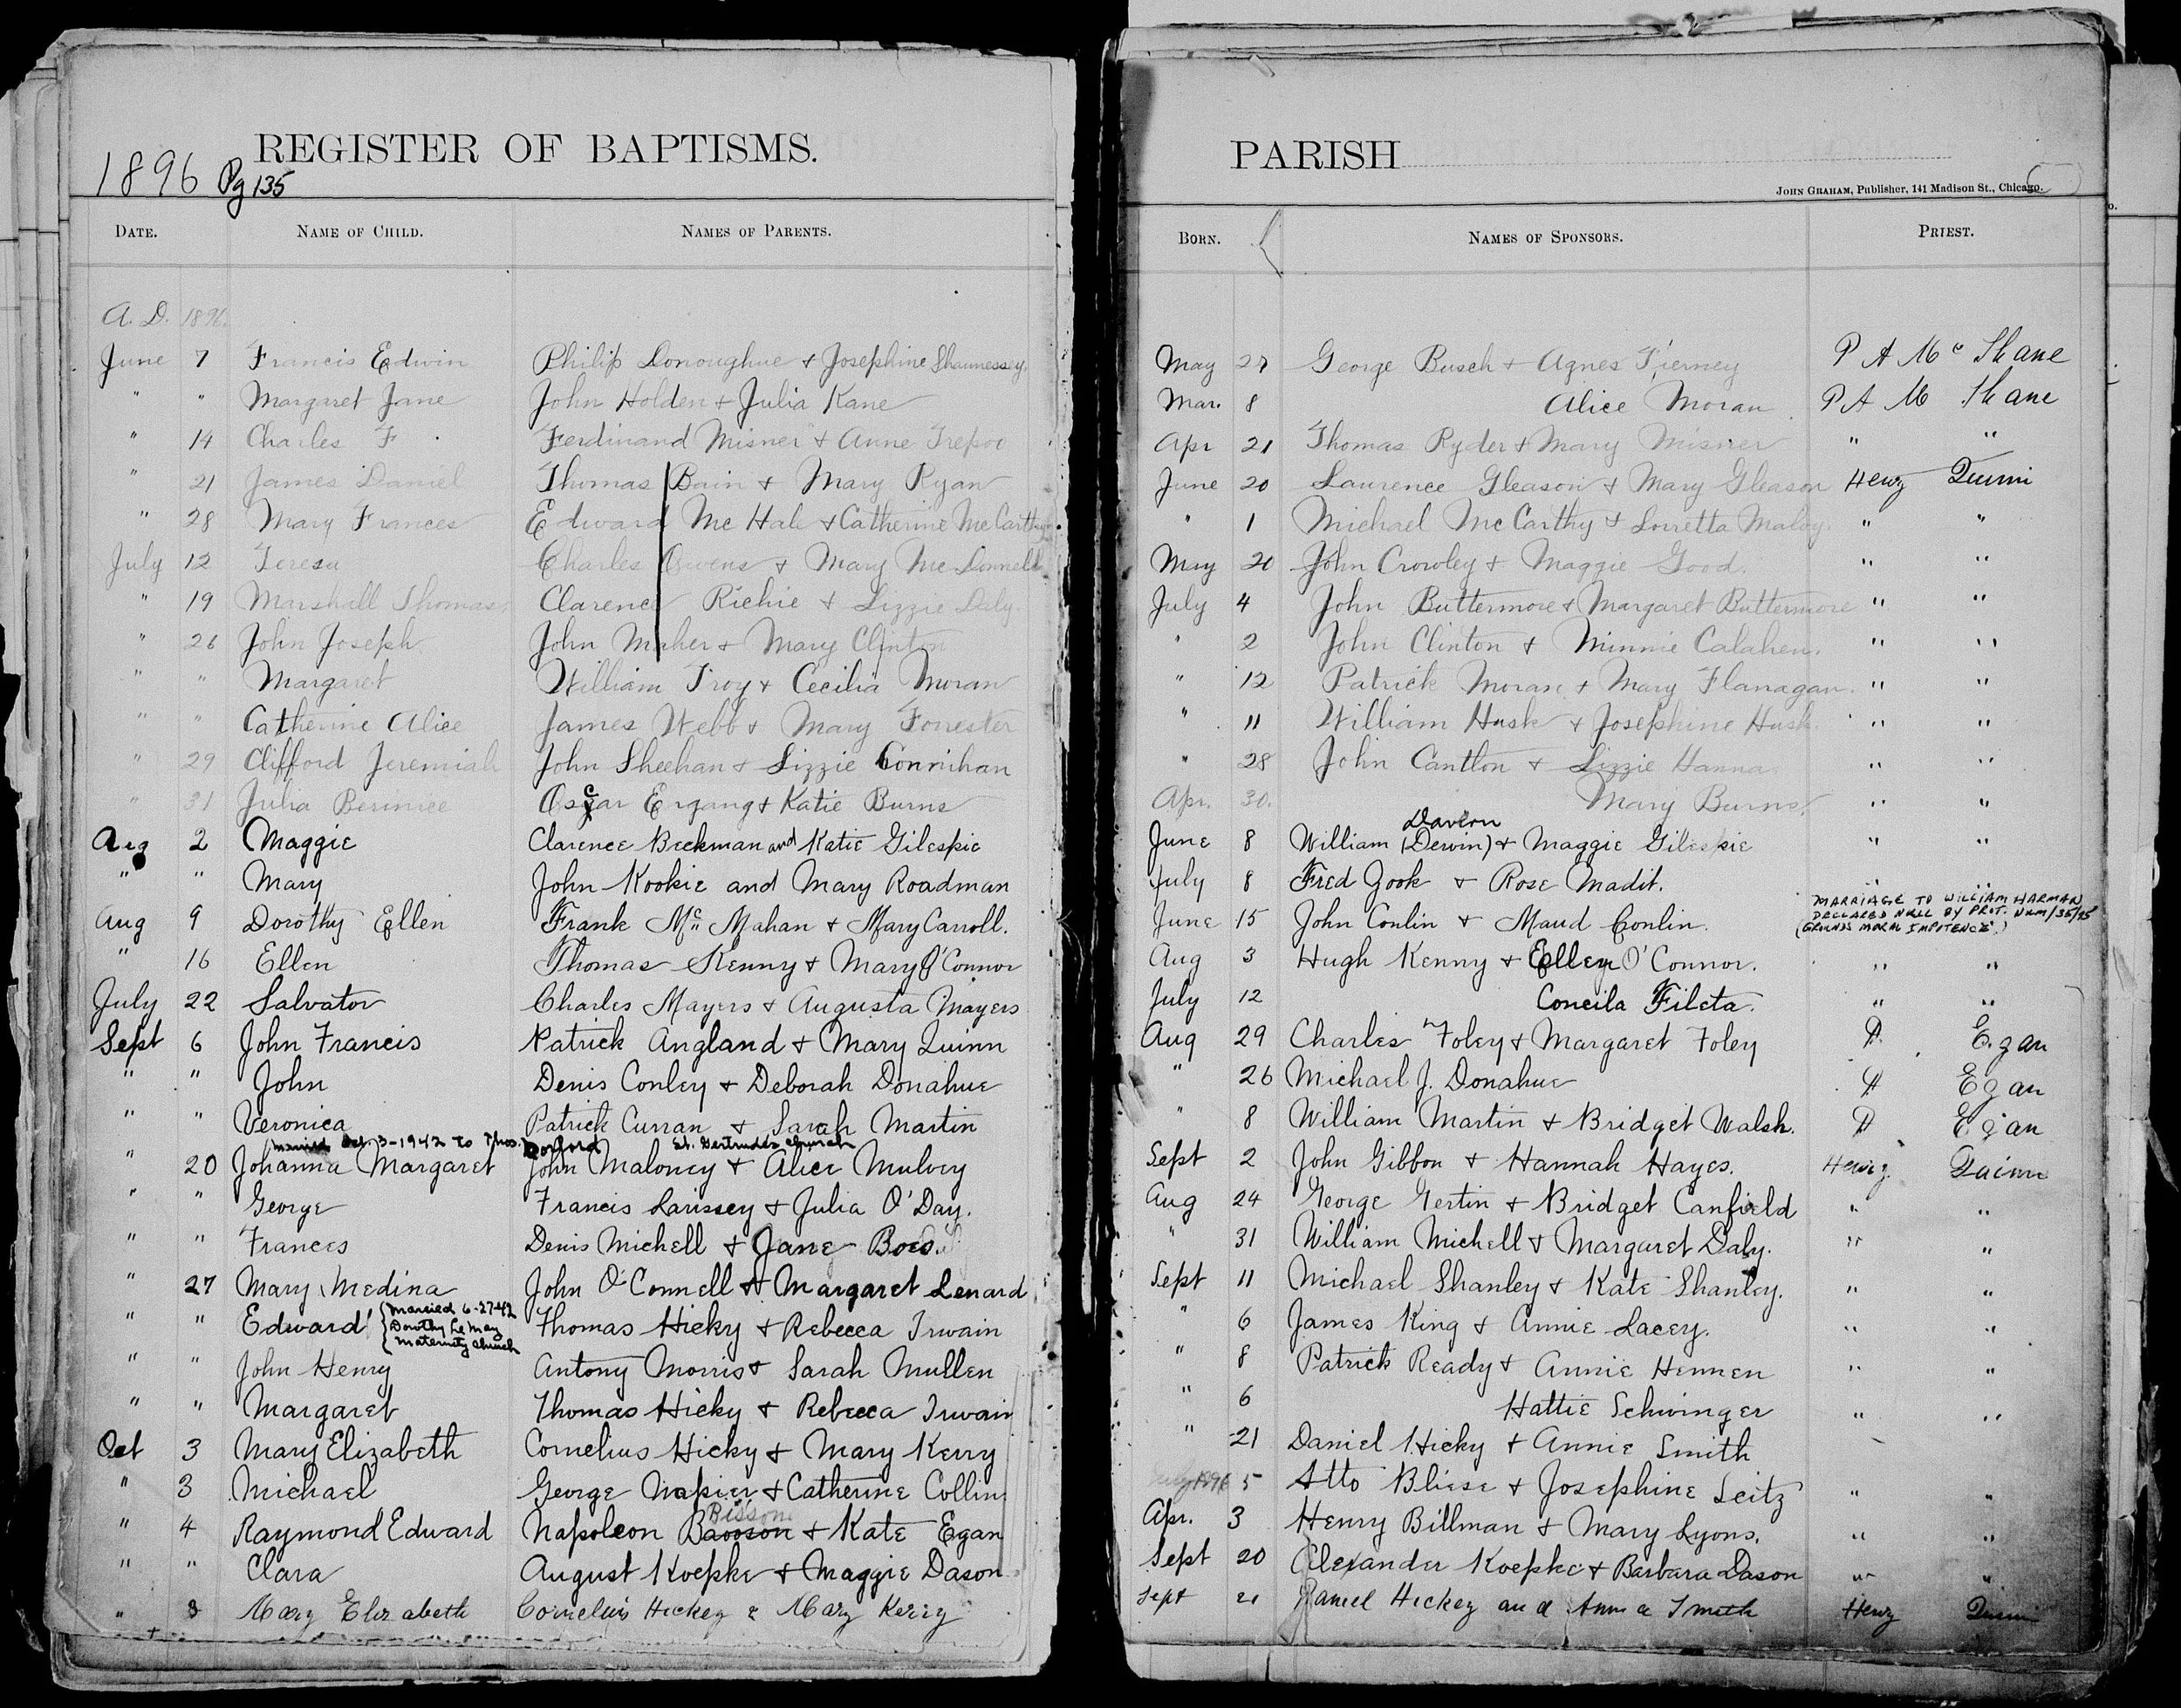 REGISTER OF BAPTISMS.
1896 Pg 135
DATE. NAME OF CHILD. NAMES OF PARENTS.
A.D. 1896.
June 7 Francis Edwin Philip Donoughue & Josephine Shaunessey.
" " Margaret Jane John Holden & Julia Kane
" 14 Charles F. Ferdinand Misner & Anne Trepoo
" 21 James Daniel Thomas Bain & Mary Ryan
" 28 Mary Frances Edward McHale & Catherine McCarthy
July 12 Teresa Charles Owens & Mary McDonnell
" 19 Marshall Thomas Clarence Richie & Lizzie Daly.
" 26 John Joseph John Maher & Mary Clinton
" " Margaret William Troy & Cecilia Moran
" " Catherine Alice James Webb & Mary Forrester
" 29 Clifford Jeremiah John Sheehan & Lizzie Connihan
" 31 Julia Bernice Oscar Ergang & Katie Burns
Aug 2 Maggie Clarence Beckman and Katie Gilespie
" " Mary John Kookie and Mary Roadman
Aug 9 Dorothy Ellen Frank Mc Mahan & Mary Carroll.
" 16 Ellen Thomas Kenny & Mary O'Connor
July 22 Salvator Charles Mayers & Augusta Mayers
Sept 6 John Francis Patrick Angland & Mary Quinn
" " John Denis Conley & Deborah Donahue
" " Veronica Patrick Curran & Sarah Martin
(married Oct. 3-1942 to Thos. St. Gertrudes Church
" 20 Johanna Margaret John Maloney & Alice Mulvey
" " George Francis Larissey & Julia O'Day.
" " Frances Denis Michell & Jane Boes
" 27 Mary Medina John O'Connell & Margaret Lenard
" " Edward Thomas Hicky & Rebecca Irwain
{married 6-27-42
Dorothy Le May
Maternity Church
" " John Henry Antony Morris & Sarah Mullen
" " Margaret Thomas Hicky & Rebecca Irwain
Oct 3 Mary Elizabeth Cornelius Hicky & Mary Kerry
" 3 Michael George Napier & Catherine Collins
Bisson
" 4 Raymond Edward Napoleon & Kate Egan
" " Clara August Koepke & Maggie Dason
" 3 Mary Elizabeth Cornelius Hickey & Mary Kerry
PARISH
JOHN GRAHAM, Publisher, 141 Madison St., Chicago.
BORN. NAMES OF SPONSORS. PRIEST.
May 27 George Busch & Agnes Tierney P A Mc Shane
Mar. 8 Alice Moran P A Mc Shane
Apr 21 Thomas Ryder & Mary Misner " "
June 20 Laurence Gleason & Mary Gleason Henry Quinn
" 1 Michael McCarthy & Lorretta Maloy. " "
May 20 John Crowley & Maggie Good. " "
July 4 John Buttermore & Margaret Buttermore " "
" 2 John Clinton & Minnie Calahen. " "
" 12 Patrick Moran & Mary Flanagan. " "
" 11 William Husk & Josephine Husk " "
" 28 John Cantlon & Lizzie Hanna " "
Apr. 30. Mary Burns. " "
Davern
June 8 William (Dervin) & Maggie Gilespie " "
July 8 Fred Gook & Rose Madit. " "
MARRIAGE TO WILLIAM HARMAN
DECLARED NULL BY PROT. NUM/35/75
(GROUNDS MORAL IMPOTENCE.)
June 15 John Conlin & Maud Conlin.
Aug 3 Hugh Kenny & Ellen O'Connor. " "
July 12 Concila Fileta. " "
Aug 29 Charles Foley & Margaret Foley P. Egan
" 26 Michael J. Donahue P Egan
" 8 William Martin & Bridget Walsh. P Egan
Sept 2 John Gibbon & Hannah Hayes. Henry Quinn
Aug 24 George Gertin & Bridget Canfield " "
" 31 William Michell & Margaret Daly. " "
Sept 11 Michael Shanley & Kate Shanley. " "
" 6 James King & Annie Lacey. " "
" 8 Patrick Ready & Annie Hennen " "
" 6 Hattie Schwinger " "
" 21 Daniel Hicky & Annie Smith
July 1896 5 Atto Bliese & Josephine Seitz " "
Apr. 3 Henry Billman & Mary Lyons. " "
Sept 20 Alexander Koepke & Barbara Dason " "
Sept 21 Daniel Hickey and Anna Smith Henry Quinn